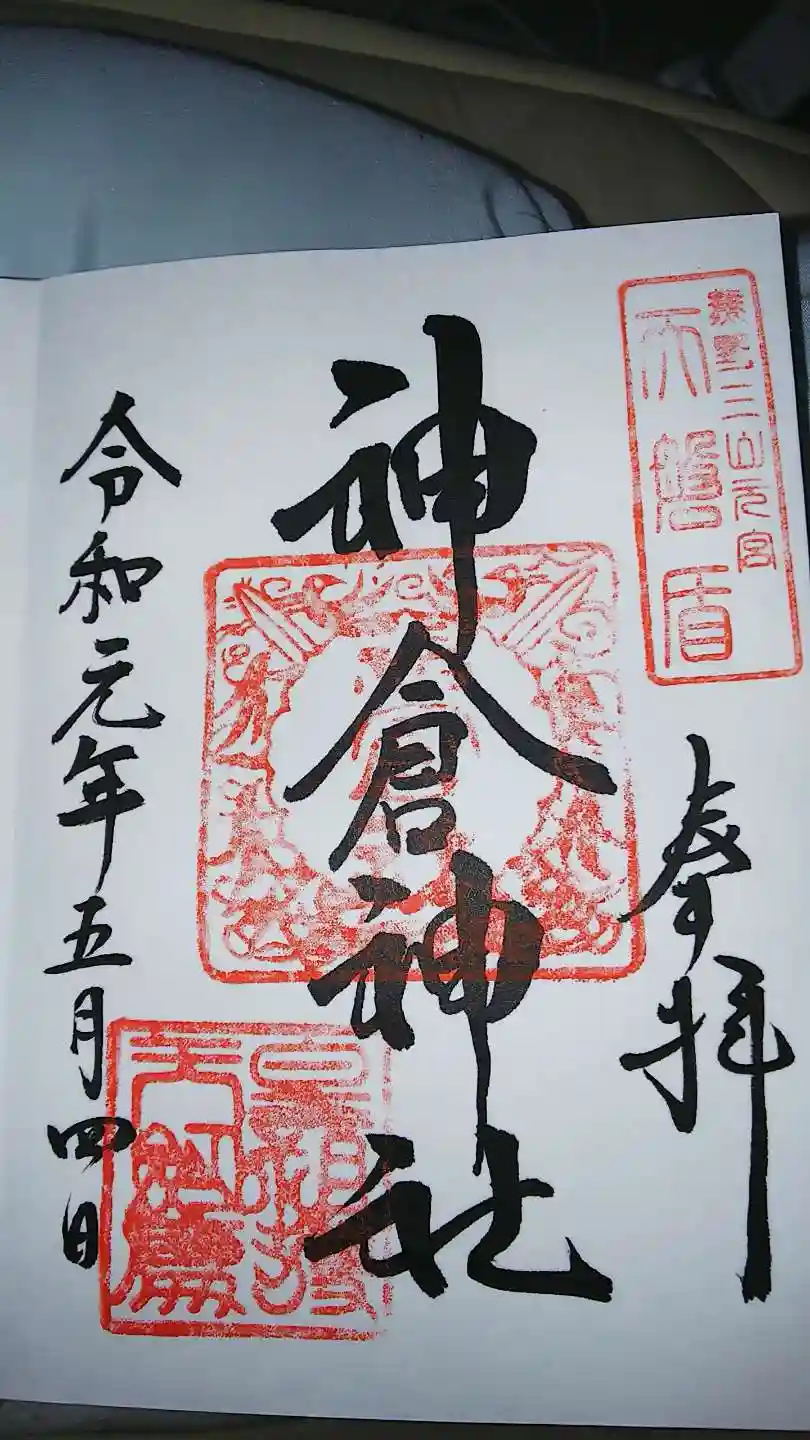 熊野三山元宮
天磐盾
奉拝
神倉神社
令和元年五月四日